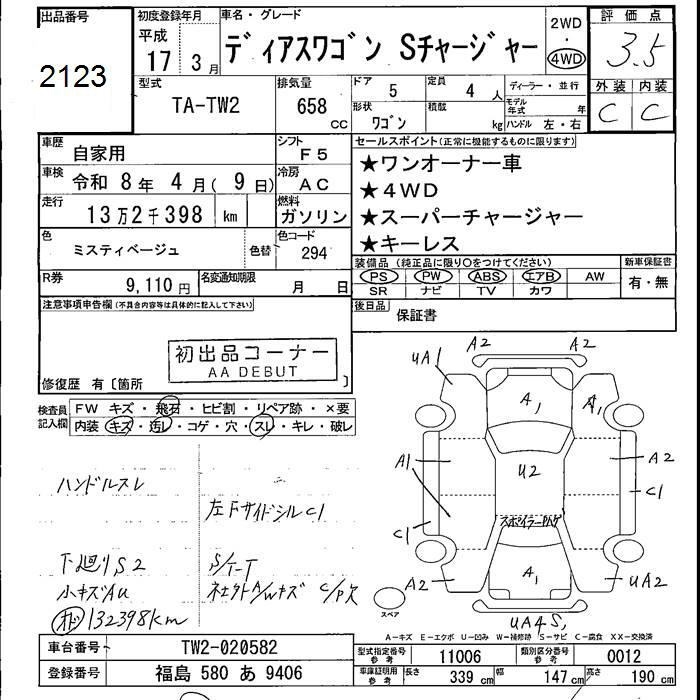 出品番号
2123
初度登録年月
平成
17 3月
車名・グレード
ディアスワゴン Sチャージャー
2WD
・
4WD
評価点
3.5
外装 内装
C C
型式
TA-TW2
排気量
658
CC
ドア 5
定員 4 人
形状 ワゴン
積載 kg
ディーラー・並行
モデル年式 年
ハンドル 左・右
車歴 自家用
シフト F5
車検 令和 8年 4月( 9日)
冷房 AC
走行 13万2千398 km
燃料 ガソリン
色 ミスティベージュ
色替
色コード 294
R券 9,110円
名変通知期限 月 日
セールスポイント(正常に機能するものに限ります)
★ワンオーナー車
★4WD
★スーパーチャージャー
★キーレス
装備品 (純正品に限り○をつけてください)
新車保証書
PS PW ABS エアB AW
SR ナビ TV カワ
有・無
後日品
保証書
注意事項申告欄(不具合内容等は具体的に記入して下さい)
初出品コーナー
AA DEBUT
修復歴 有〔箇所 〕
検査員記入欄
FW キズ・飛石・ヒビ割・リペア跡・×要
内装 キズ・汚レ・コゲ・穴・スレ・キレ・破レ
ハンドルスレ
左FサイドシルC1
下廻りS2
小キズAU
オド 132398km
A2 A2
UA1
A1 A1
A1 U2 A2
C1
スポイラー
C1
A2 A1 UA2
UA4S1
スペア
A-キズ E-エクボ U-凹み W-補修跡 S-サビ C-腐食 XX-交換済
車台番号 TW2-020582
登録番号 福島 580 あ 9406
型式指定番号 参考 11006
類別区分番号 参考 0012
車庫証明用 参考
長さ 339 cm
幅 147 cm
高さ 190 cm